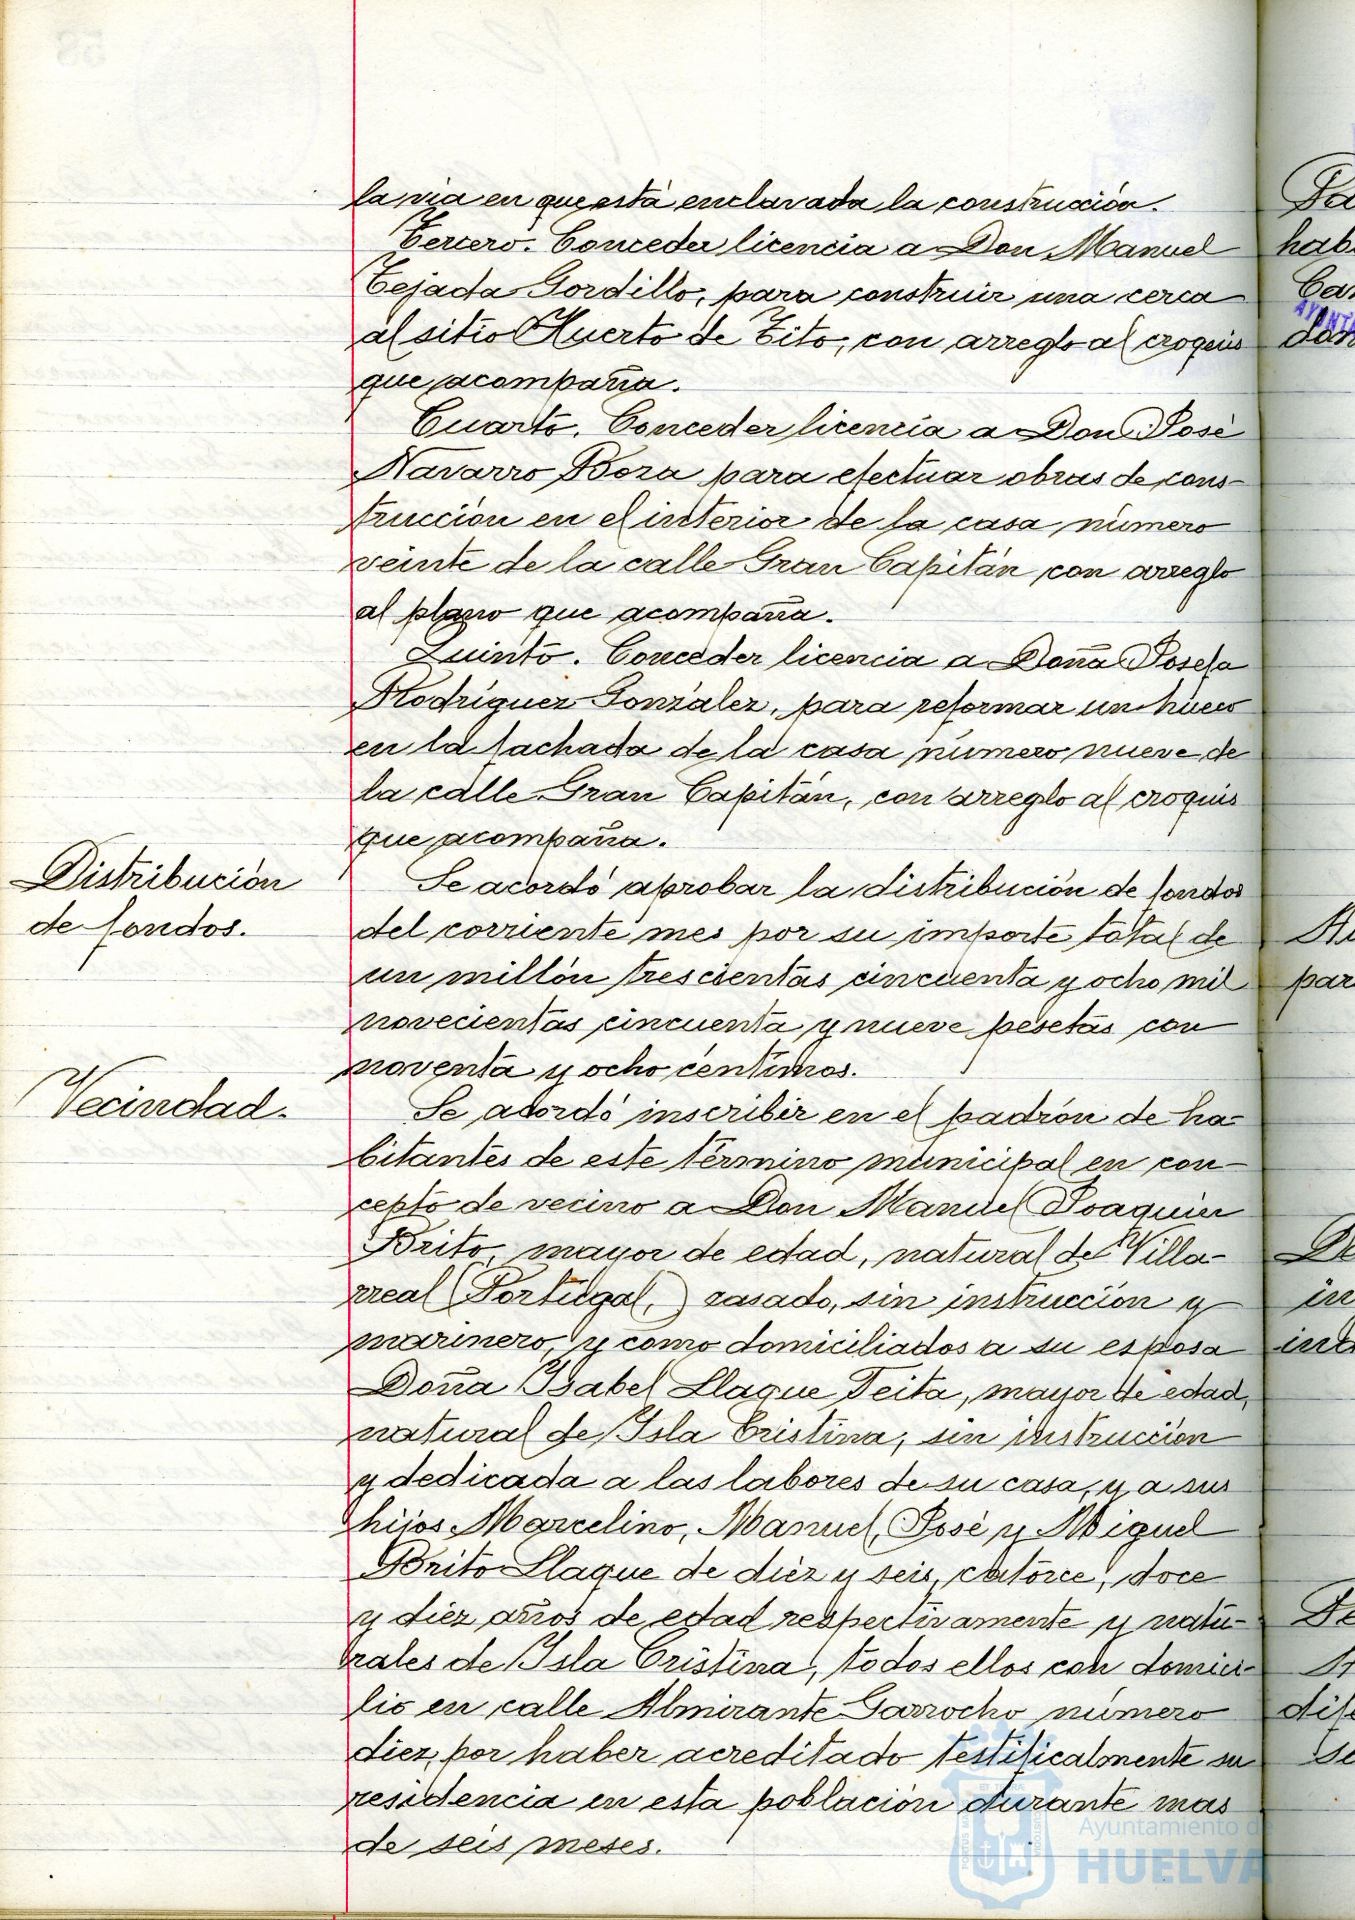 la via en que está enclavada la construcción.
Tercero. Conceder licencia a Don Manuel
Tejada Gordillo, para construir una cerca
al sitio Huerto de Tito, con arreglo al croquis
que acompaña.
Cuarto. Conceder licencia a Don José
Navarro Boza para efectuar obras de cons-
trucción en el interior de la casa número
veinte de la calle Gran Capitán con arreglo
al plano que acompaña.
Quinto. Conceder licencia a Doña Josefa
Rodríguez González, para reformar un hueco
en la fachada de la casa número nueve de
la calle Gran Capitán, con arreglo al croquis
que acompaña.
Distribución
de fondos.
Se acordó aprobar la distribución de fondos
del corriente mes por su importe total de
un millón trescientas cincuenta y ocho mil
novecientas cincuenta y nueve pesetas con
noventa y ocho céntimos.
Vecindad.
Se acordó inscribir en el padrón de ha-
bitantes de este término municipal en con-
cepto de vecino a Don Manuel Joaquín
Brito, mayor de edad, natural de Villa-
rreal (Portugal,) casado, sin instrucción y
marinero, y como domiciliados a su esposa
Doña Isabel Llaque Feita, mayor de edad,
natural de Isla Cristina, sin instrucción
y dedicada a las labores de su casa, y a sus
hijos Marcelino, Manuel, José y Miguel
Brito Llaque de diez y seis, catorce, doce
y diez años de edad respectivamente y natu-
rales de Isla Cristina, todos ellos con domici-
lio en calle Almirante Garrocho número
diez, por haber acreditado testificalmente su
residencia en esta población durante mas
de seis meses.
Ayuntamiento de
HUELVA